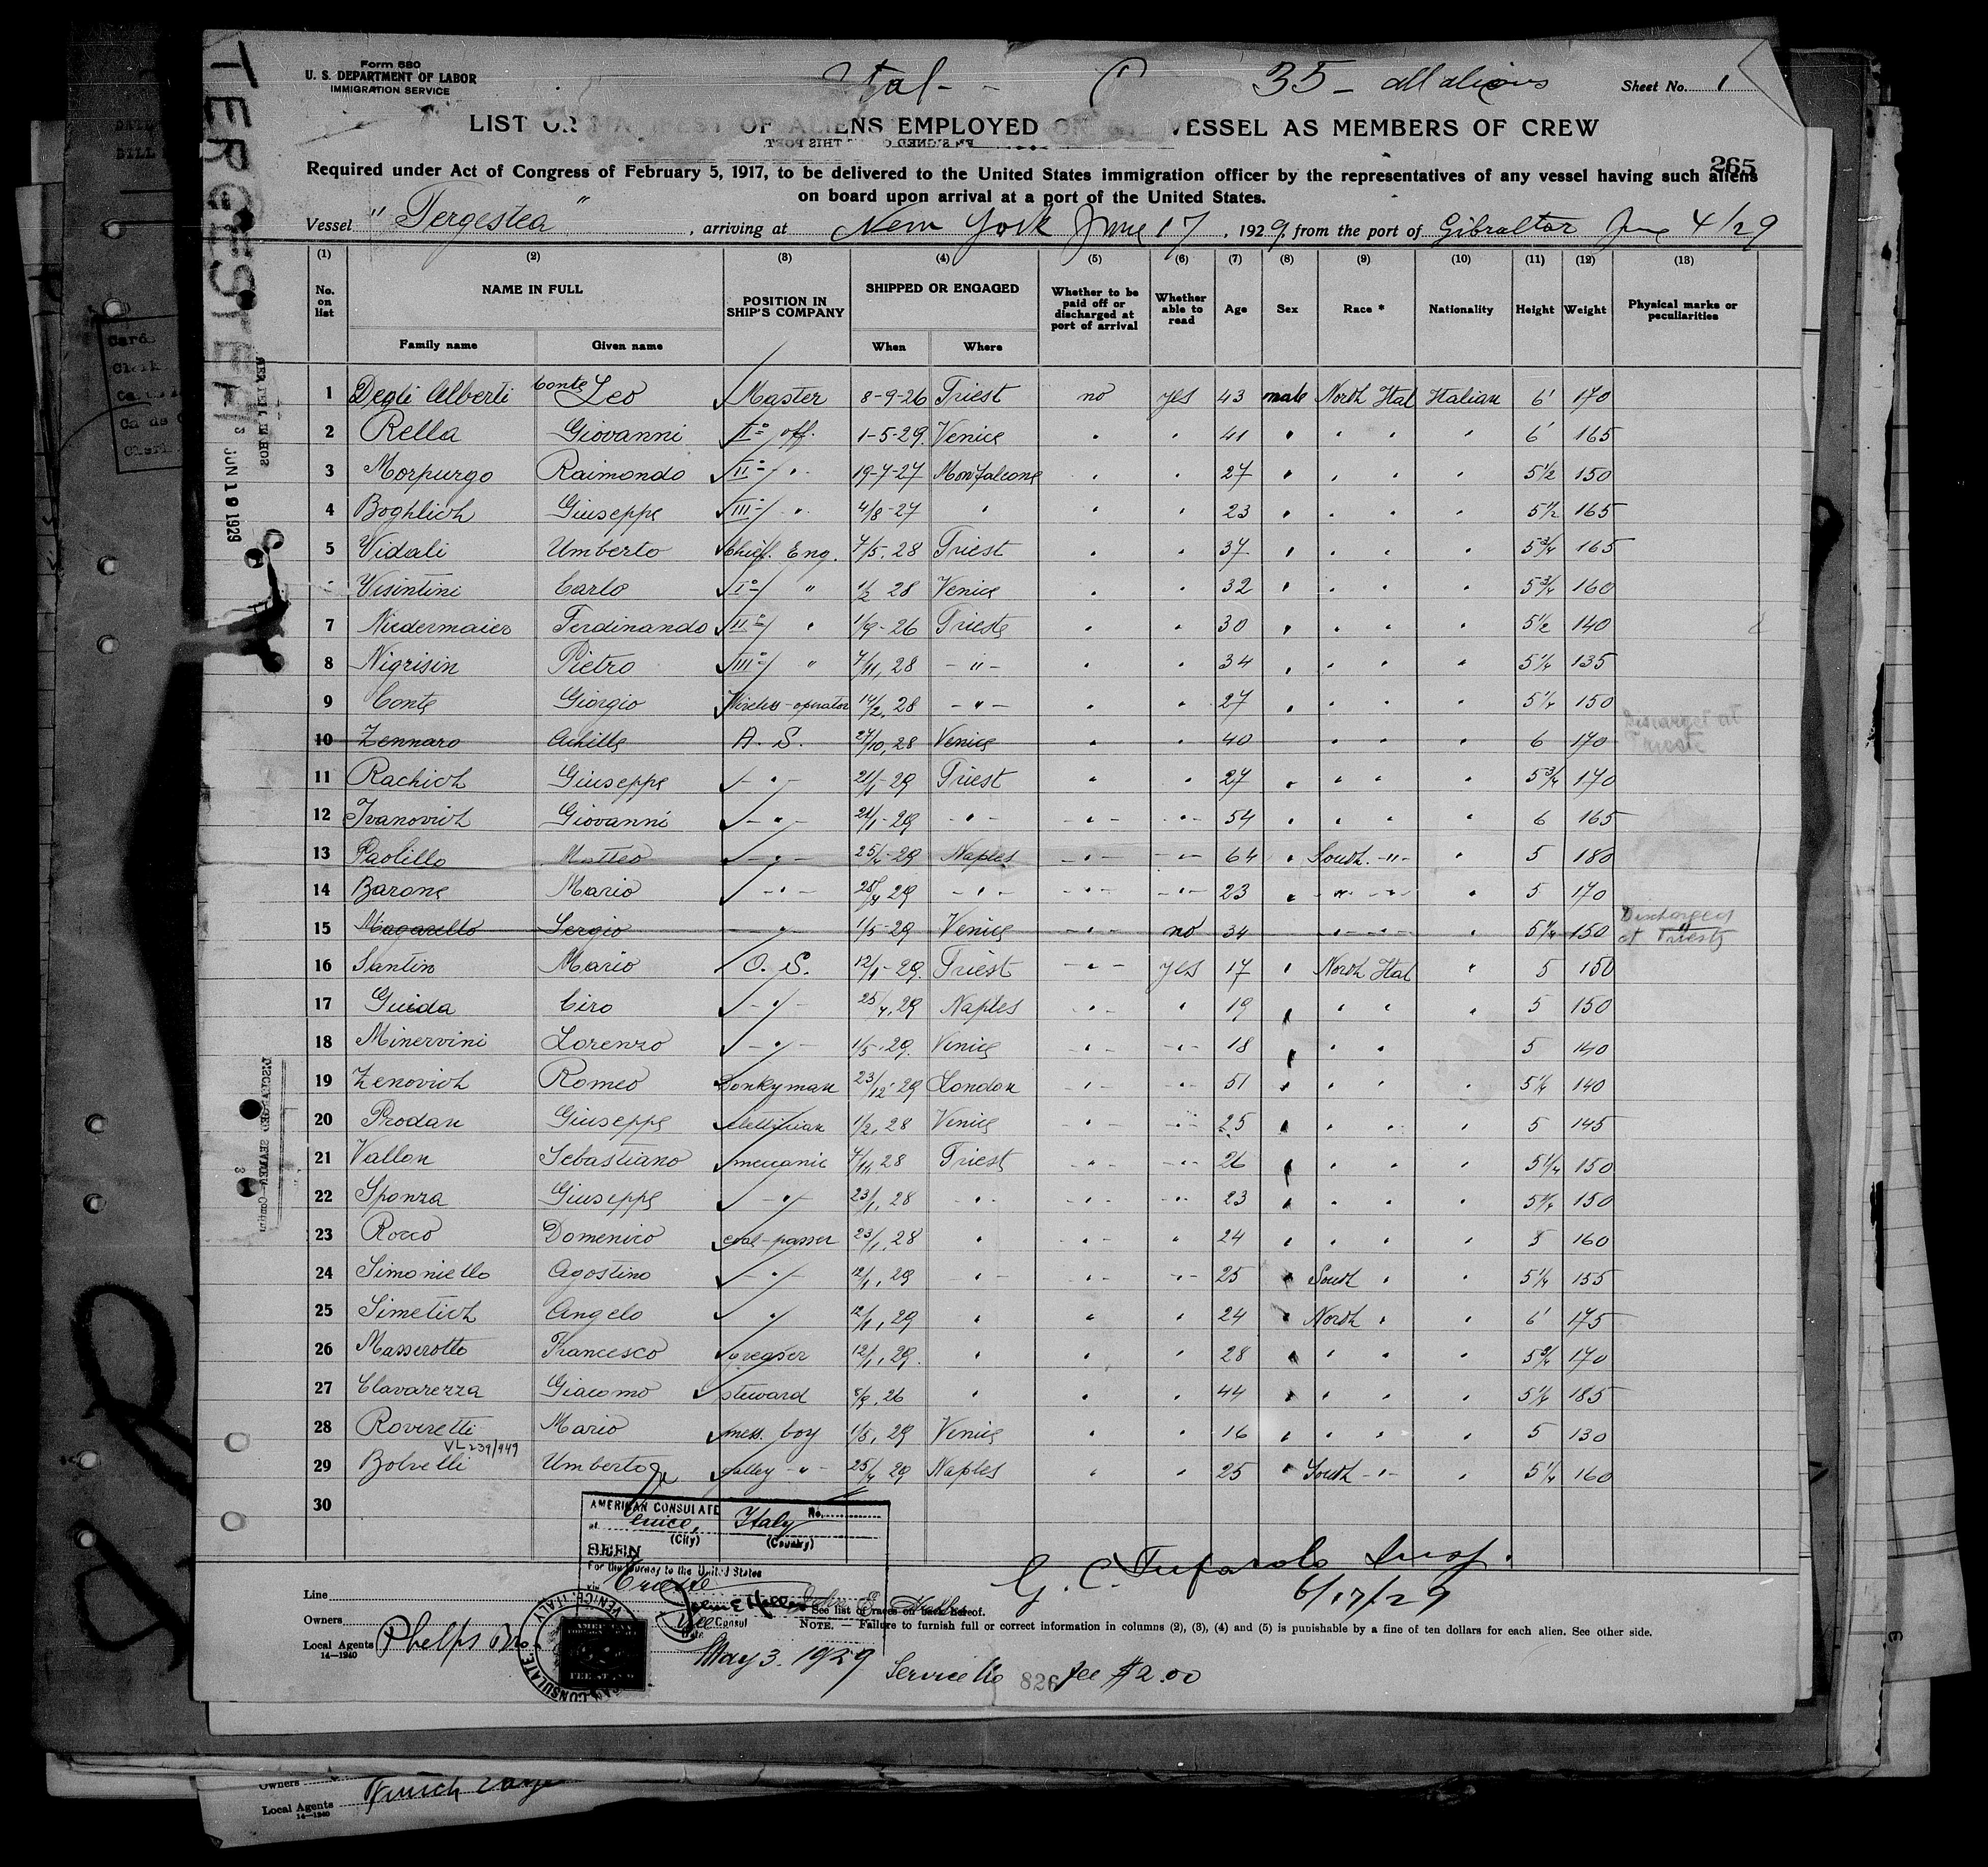 Form 680
U. S. DEPARTMENT OF LABOR
IMMIGRATION SERVICE
Ital - 35 - all aliens
Sheet No. 1
LIST OR MANIFEST OF ALIENS EMPLOYED ON THE VESSEL AS MEMBERS OF CREW
265
Required under Act of Congress of February 5, 1917, to be delivered to the United States immigration officer by the representatives of any vessel having such aliens
on board upon arrival at a port of the United States.
Vessel "Tergestea", arriving at New York June 17, 1929, from the port of Gibraltar June 4/29
(1) (2) (3) (4) (5) (6) (7) (8) (9) (10) (11) (12) (13)
No. on list NAME IN FULL POSITION IN SHIP'S COMPANY SHIPPED OR ENGAGED Whether to be paid off or discharged at port of arrival Whether able to read Age Sex Race * Nationality Height Weight Physical marks or peculiarities
Family name Given name When Where
1 Degli Alberti Conte Leo Master 8-9-26 Triest no yes 43 male North Ital Italian 6' 170
2 Rella Giovanni I° off. 1-5-29 Venice " " 41 " " " " 6' 165
3 Morpurgo Raimondo II° " 19-7-27 Monfalcone " " 27 " " " " 5 1/2 150
4 Boghlich Giuseppe III° " 4/8-27 " " " 23 " " " " 5 1/2 165
5 Vidali Umberto Chief. Eng. 7/5, 28 Triest " " 37 " " " " 5 3/4 165
Visintini Carlo I° " 1/2 28 Venice " " 32 " " " " 5 3/4 160
7 Niedermaier Ferdinando II° " 1/9-26 Trieste " " 30 " " " " 5 1/2 140
8 Nigrisin Pietro III° " 7/11, 28 - " - " " 34 " " " " 5 1/4 135
9 Conte Giorgio Wireless-operator 14/2, 28 - " - " " 27 " " " " 5 1/4 150
10 Zennaro Achille A. S. 27/10, 28 Venice " 40 " " " 6 170 Discarget at Trieste
11 Rachich Giuseppe - " - 21/1-29 Triest " " 27 " " " " 5 3/4 170
12 Ivanovich Giovanni - " - 21/1-29 - " - - " - - " - 54 " " " " 6 165
13 Paolillo Matteo - " - 25/4-29 Naples - " - - " - 64 " South - " - " 5 180
14 Barone Mario - " - 25/4 29 - " - - " - - " - 23 " " " " 5 170
15 Magarello Sergio " 1/5-29 Venice - " - no 34 - " - - " - " 5 1/4 150 Discharged at Trieste
16 Santin Mario O. S. 12/1-29 Triest - " - yes 17 " North Ital " 5 150
17 Guida Ciro - " - 25/4, 29 Naples - " - " 19 " " " " 5 150
18 Minervini Lorenzo - " - 1/5-29. Venice - " - - " - 18 " " " 5 140
19 Zenovich Romeo Donkyman 23/12 29 London - " - - " - 51 " " " " 5 1/4 140
20 Prodan Giuseppe 1/2, 28 Venice - " - - " - 25 " " " " 5 145
21 Vallon Sebastiano meccanic 7/11 28 Triest - " - - " - 26 " " " " 5 1/4 150
22 Sponza Giuseppe - " - 23/1, 28 - " - - " - - " - 23 " " " " 5 1/4 150
23 Rocco Domenico coal-passer 23/1, 28 " - " - " 24 " " " " 5 160
24 Simoniello Agostino - " - 12/1, 29 - " - - " - - " - 25 " South " " 5 1/4 155
25 Simetich Angelo " 12/1, 29 " " " 24 " North " " 6' 175
26 Masserotto Francesco greaser 12/1, 29. " " " 28 " " " " 5 3/4 170
27 Clavarezza Giacomo steward 8/9, 26 " " " 44 " " " " 5 1/2 185
28 Roveretti Mario mess. boy 1/5, 29 Venice " " 16 " " " " 5 130
VL 239/949
29 Bolvelli Umberto galley - " - 25/4 29 Naples " " 25 " South - " - " 5 1/4 160
30
AMERICAN CONSULATE No.
at Venice, Italy
(City) (Country)
SEEN
For the journey to the United States
via Trieste
John E. Holler
Vice Consul
Date
May 3. 1929
Service No 826 fee $2.00
G. C. Tufarolo Insp.
6/17/29
Line
Owners
Local Agents Phelps Bros
14—1240
See list of races on back hereof.
NOTE. — Failure to furnish full or correct information in columns (2), (3), (4) and (5) is punishable by a fine of ten dollars for each alien. See other side.
AMERICAN CONSULATE, VENICE, ITALY
TERGESTEA
JUN 19 1929
Owners
Local Agents
14—1240